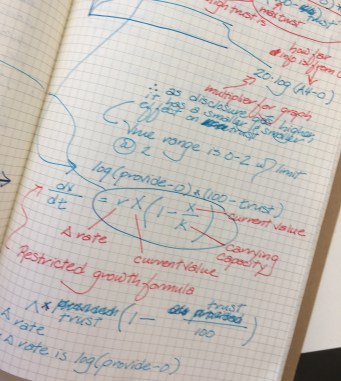 high trust is
trust
how far
is from
20·log(A4-0)
multiplier for graph
∴ as disclosure gets higher,
has a smaller & smaller
effect on trust
value range is 0-2 w/ limit
2
log(provide-0) ± (100-trust)
dx/dt = r x (1 - x/k)
current value
Δ rate
current value
carrying
capacity
Restricted growth formula
trust (1 - trust/100)
Δ rate
Δ rate is log(provide-0)